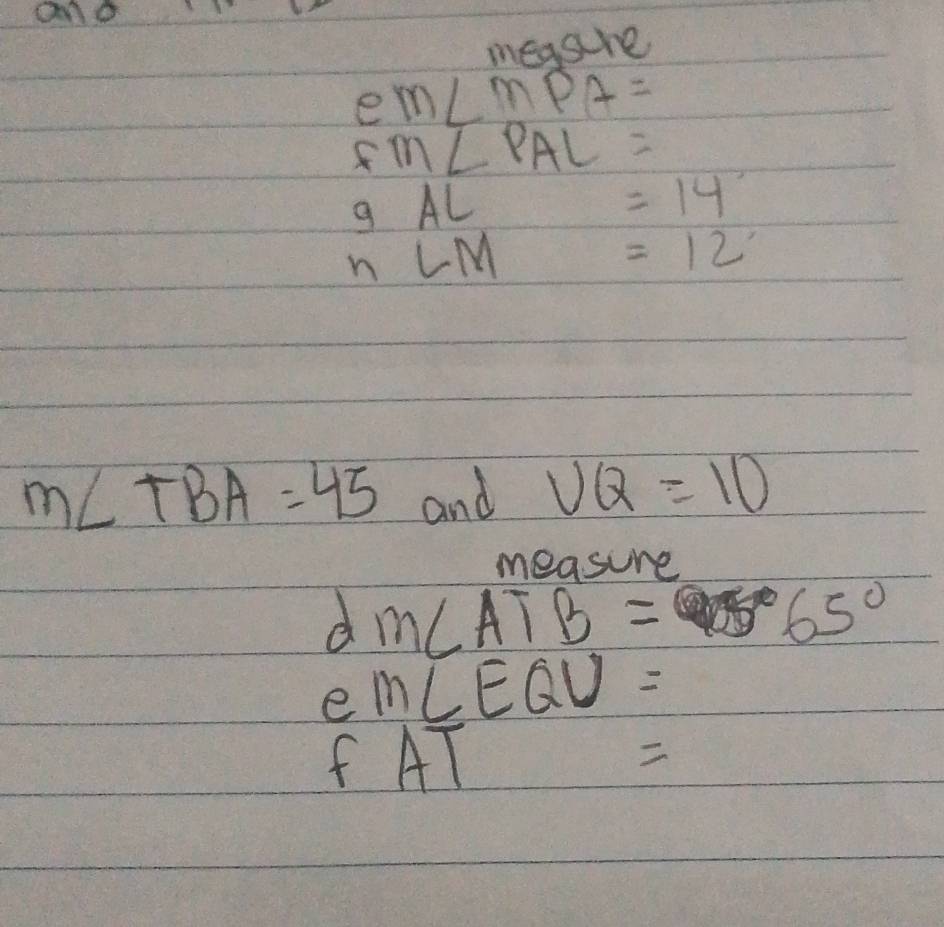 and
measure
e m∠ MPA =
f m∠ PAL =
g AL = 14
h LM = 12
m∠ TBA = 45 and UQ = 10
measure
d m∠ ATB = 65°
e m∠ EQU =
f AT =